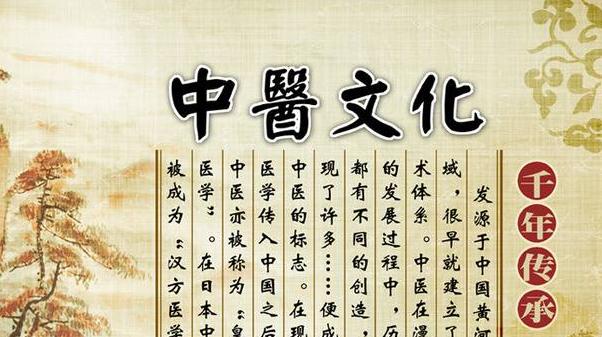 中醫文化
千年传承
发源于中国黄河
域，很早就建立了
术体系。中医在漫
的发展过程中，历
都有不同的创造，
现了许多……便成
中医的标志。在现
医学传入中国之后
中医亦被称为“皇
医学”。在日本中
被成为“汉方医学